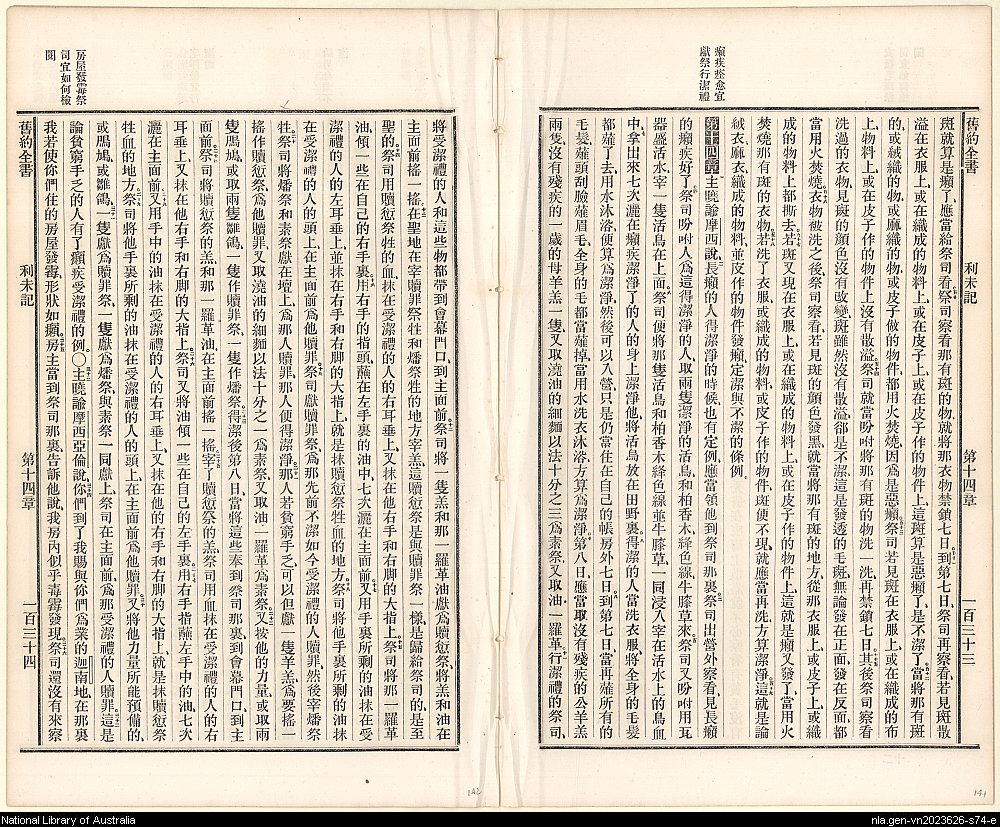 舊約全書 利未記 第十四章 一百三十三
癩疾痊愈宜
獻祭行潔禮
斑就算是癩了應當給祭司看祭司察看那有斑的物就將那衣物禁鎖七日到第七日祭司再察看若見斑散
溢在衣服上或在織成的物料上或在皮子上或在皮子作的物件上這斑算是惡癩了是不潔了當將那有斑
的或絨織的物或麻織的物或皮子做的物件都用火焚燒因為是惡癩祭司若見斑在衣服上或在織成的布
上物料上或在皮子作的物件上沒有散溢祭司就當吩咐將那有斑的物洗一洗再禁鎖七日其後祭司察看
洗過的衣物見斑的顏色沒有改變斑雖然沒有散溢卻是不潔這是發透的毛斑無論發在正面發在反面都
當用火焚燒衣物被洗之後祭司察看若見斑的顏色發黑就當將那有斑的地方從那衣服上或皮子上或織
成的物料上都撕去若斑又現在衣服上或在織成的物料上或在皮子作的物件上這就是癩又發了當用火
焚燒那有斑的衣物若洗了衣服或織成的物料或皮子作的物件斑便不現就應當再洗方算潔淨這就是論
絨衣麻衣織成的物料並皮作的物件發癩定潔與不潔的條例
第十四章主曉諭摩西說長癩的人得潔淨的時候也有定例應當領他到祭司那裏祭司出營外察看見長癩
的癩疾好了祭司吩咐人為這得潔淨的人取兩隻潔淨的活鳥和柏香木絳色線牛膝草來祭司又吩咐用瓦
器盛活水宰一隻活鳥在上面祭司便將那隻活鳥和柏香木絳色線並牛膝草一同浸入宰在活水上的鳥血
中拿出來七次灑在癩疾潔淨了的人的身上潔淨他將活鳥放在田野裏得潔的人當洗衣服將全身的毛髮
都薙了去用水沐浴便算為潔淨然後可以入營只是仍當住在自己的帳房外七日到第七日當再薙所有的
毛髮薙頭刮臉薙眉毛全身的毛都當薙掉當用水洗衣沐浴方算為潔淨第八日應當取沒有殘疾的公羊羔
兩隻沒有殘疾的一歲的母羊羔一隻又取澆油的細麵以法十分之三為素祭又取油一羅革行潔禮的祭司
將受潔禮的人和這些物都帶到會幕門口到主面前祭司將一隻羔和那一羅革油獻為贖愆祭將羔和油在
主面前搖一搖在聖地在宰贖罪祭牲和燔祭牲的地方宰羔這贖愆祭是與贖罪祭一樣是歸給祭司的是至
聖的祭司用贖愆祭牲的血抹在受潔禮的人的右耳垂上又抹在他右手和右脚的大指上祭司將那一羅革
油傾一些在自己的右手裏用右手的指頭蘸在左手裏的油中七次灑在主面前又用手裏所剩的油抹在受
潔禮的人的右耳垂上並抹在右手和右脚的大指上就是抹贖愆祭牲血的地方祭司將他手裏所剩的油抹
在受潔禮的人的頭上在主面前為他贖罪祭司獻贖罪祭為那先前不潔如今受潔禮的人贖罪然後宰燔祭
牲祭司將燔祭和素祭獻在壇上為那人贖罪那人便得潔淨那人若貧窮手乏可以但獻一隻羊羔為要搖一
搖作贖愆祭為他贖罪又取澆油的細麵以法十分之一為素祭又取油一羅革為素祭又按他的力量或取兩
隻鳲鳩或取兩隻雛鴿一隻作贖罪祭一隻作燔祭得潔後第八日當將這些奉到祭司那裏到會幕門口到主
面前祭司將贖愆祭的羔和那一羅革油在主面前搖一搖宰了贖愆祭的羔祭司用血抹在受潔禮的人的右
耳垂上又抹在他右手和右脚的大指上祭司又將油傾一些在自己的左手裏用右手指蘸左手中的油七次
灑在主面前又用手中的油抹在受潔禮的人的右耳垂上又抹在他的右手和右脚的大指上就是抹贖愆祭
牲血的地方祭司將他手裏所剩的油抹在受潔禮的人的頭上在主面前為他贖罪又將他力量所能預備的
或鳲鳩或雛鴿一隻獻為贖罪祭一隻獻為燔祭與素祭一同獻上祭司在主面前為那受潔禮的人贖罪這是
論貧窮手乏的人有了癩疾受潔禮的例〇主曉諭摩西亞倫說你們到了我賜與你們為業的迦南地在那裏
我若使你們住的房屋發霉形狀如癩房主當到祭司那裏告訴他說我房內似乎有霉發現祭司還沒有來察
舊約全書 利未記 第十四章 一百三十四
房屋發霉祭
司宜如何檢
閱
142
141
National Library of Australia
nla.gen-vn2023626-s74-e